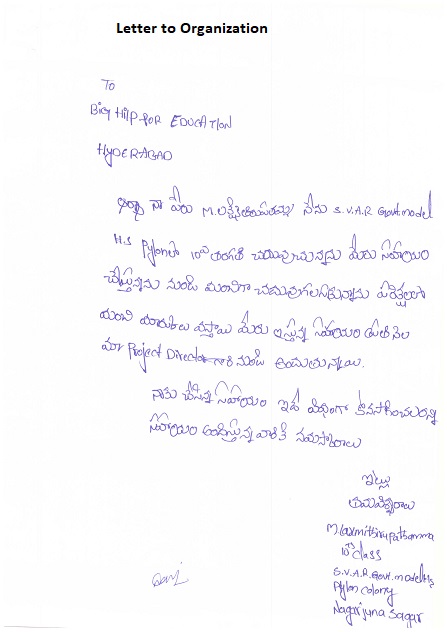 Letter to Organization
To
Big Hilp for EDUCATION
HYDERABAD
నా పేరు M.లక్ష్మీతిరుపతమ్మ నేను S.V.A.R Govt model
H.S Pylonలో 10వ తరగతి చదువుచున్నాను మీరు సహాయం
చేస్తున్నాను నుండి మంచిగా చదువుగలుగుతున్నాను పరీక్షలలో
మంచి మార్కులు వస్తాయి మీరు ఇస్తున్న సహాయం ప్రతి నెల
మా Project Director గారి నుండి అందుతున్నాయి.
నాకు చేసిన సహాయం ఇదే విధంగా కొనసాగించాలని
సహాయం అందిస్తున్న వారికి నమస్కారాలు
ఇట్లు
తమవిశ్వాసురాలు
M.laxmithirupathamma
10th class
S.V.A.R.Govt.model H.s
Pylon colony
Nagarjuna sagar